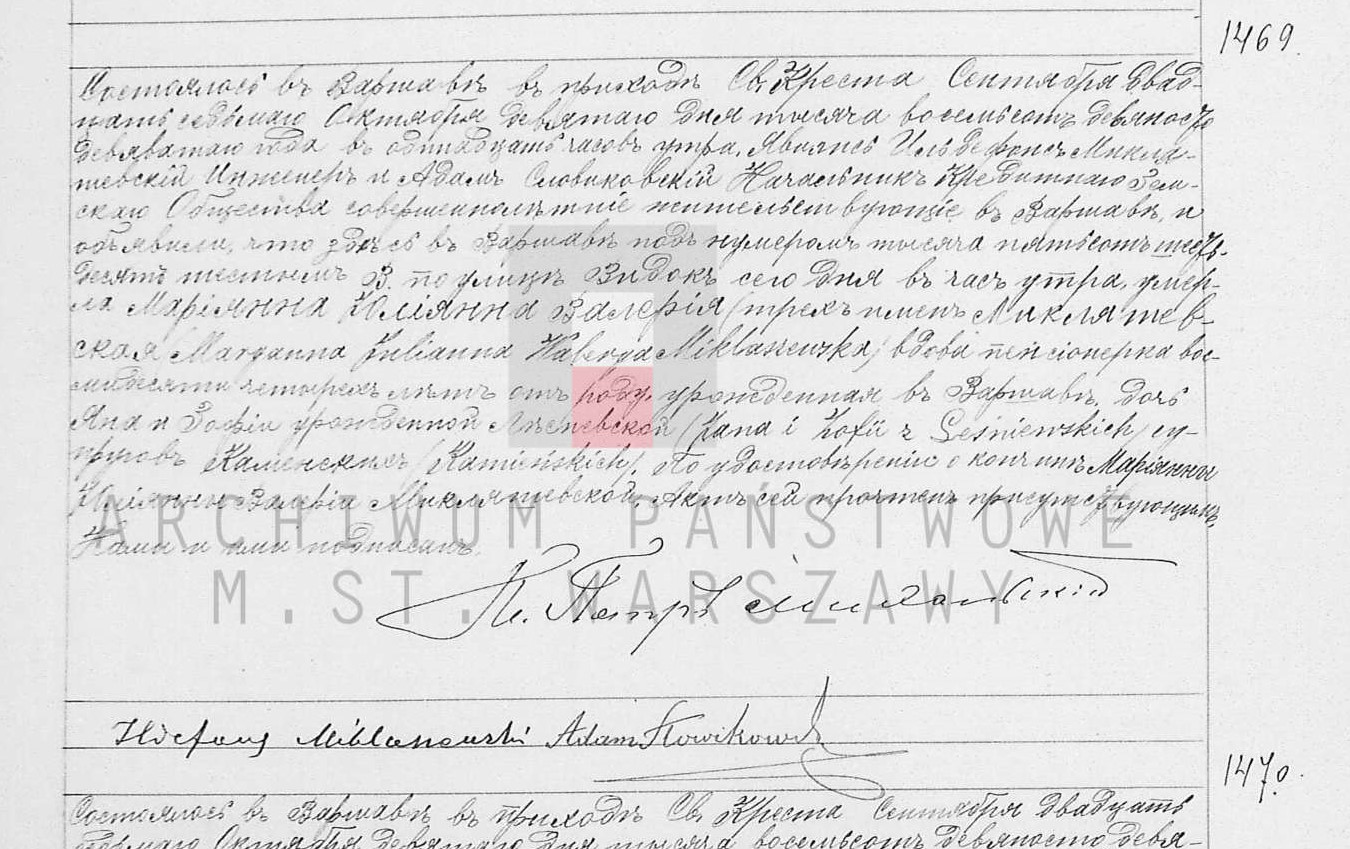 1469.
Состоялось въ Варшавѣ въ приходѣ Св. Креста Сентября двад-
цать седьмаго Октября девятаго дня тысяча восемьсотъ девяносто
девятаго года въ одинадцать часовъ утра. Явились Ильдефонсъ Микла-
шевскій Инженеръ и Адамъ Словиковскій Начальникъ Кредитнаго Зем-
скаго Общества совершеннолѣтніе жительствующіе въ Варшавѣ, и
объявили, что здѣсь въ Варшавѣ подъ нумеромъ тысяча пятьсотъ шесть-
десятъ шестымъ В. по улицѣ Видокъ сего дня въ часъ утра, умер-
ла Маріянна Юліянна Валерія (трехъ именъ) Микляшев-
ская Maryanna Julianna Miklaszewska) вдова пенсіонерка вос-
мидесяти четырехъ лѣтъ отъ роду, урожденная въ Варшавѣ, дочь
Яна и Зофіи урожденной Лѣсневской (Jana i Zofii z Leśniewskich) су-
пруговъ Каменскихъ (Kamieńskich). По удостовѣреніи о кончинѣ Маріянны
Юліянны Валеріи Микляшевской, Актъ сей прочтенъ присутствующимъ,
Нами и ими подписанъ.
ARCHIWUM PAŃSTWOWE
M.ST. WARSZAWY
Кс. Петръ
Ildefons Miklaszewski Adam Słowikowski
1470.
Состоялось въ Варшавѣ въ приходѣ Св. Креста Сентября двадцать
седьмаго Октября девятаго дня тысяча восемьсотъ девяносто девя-